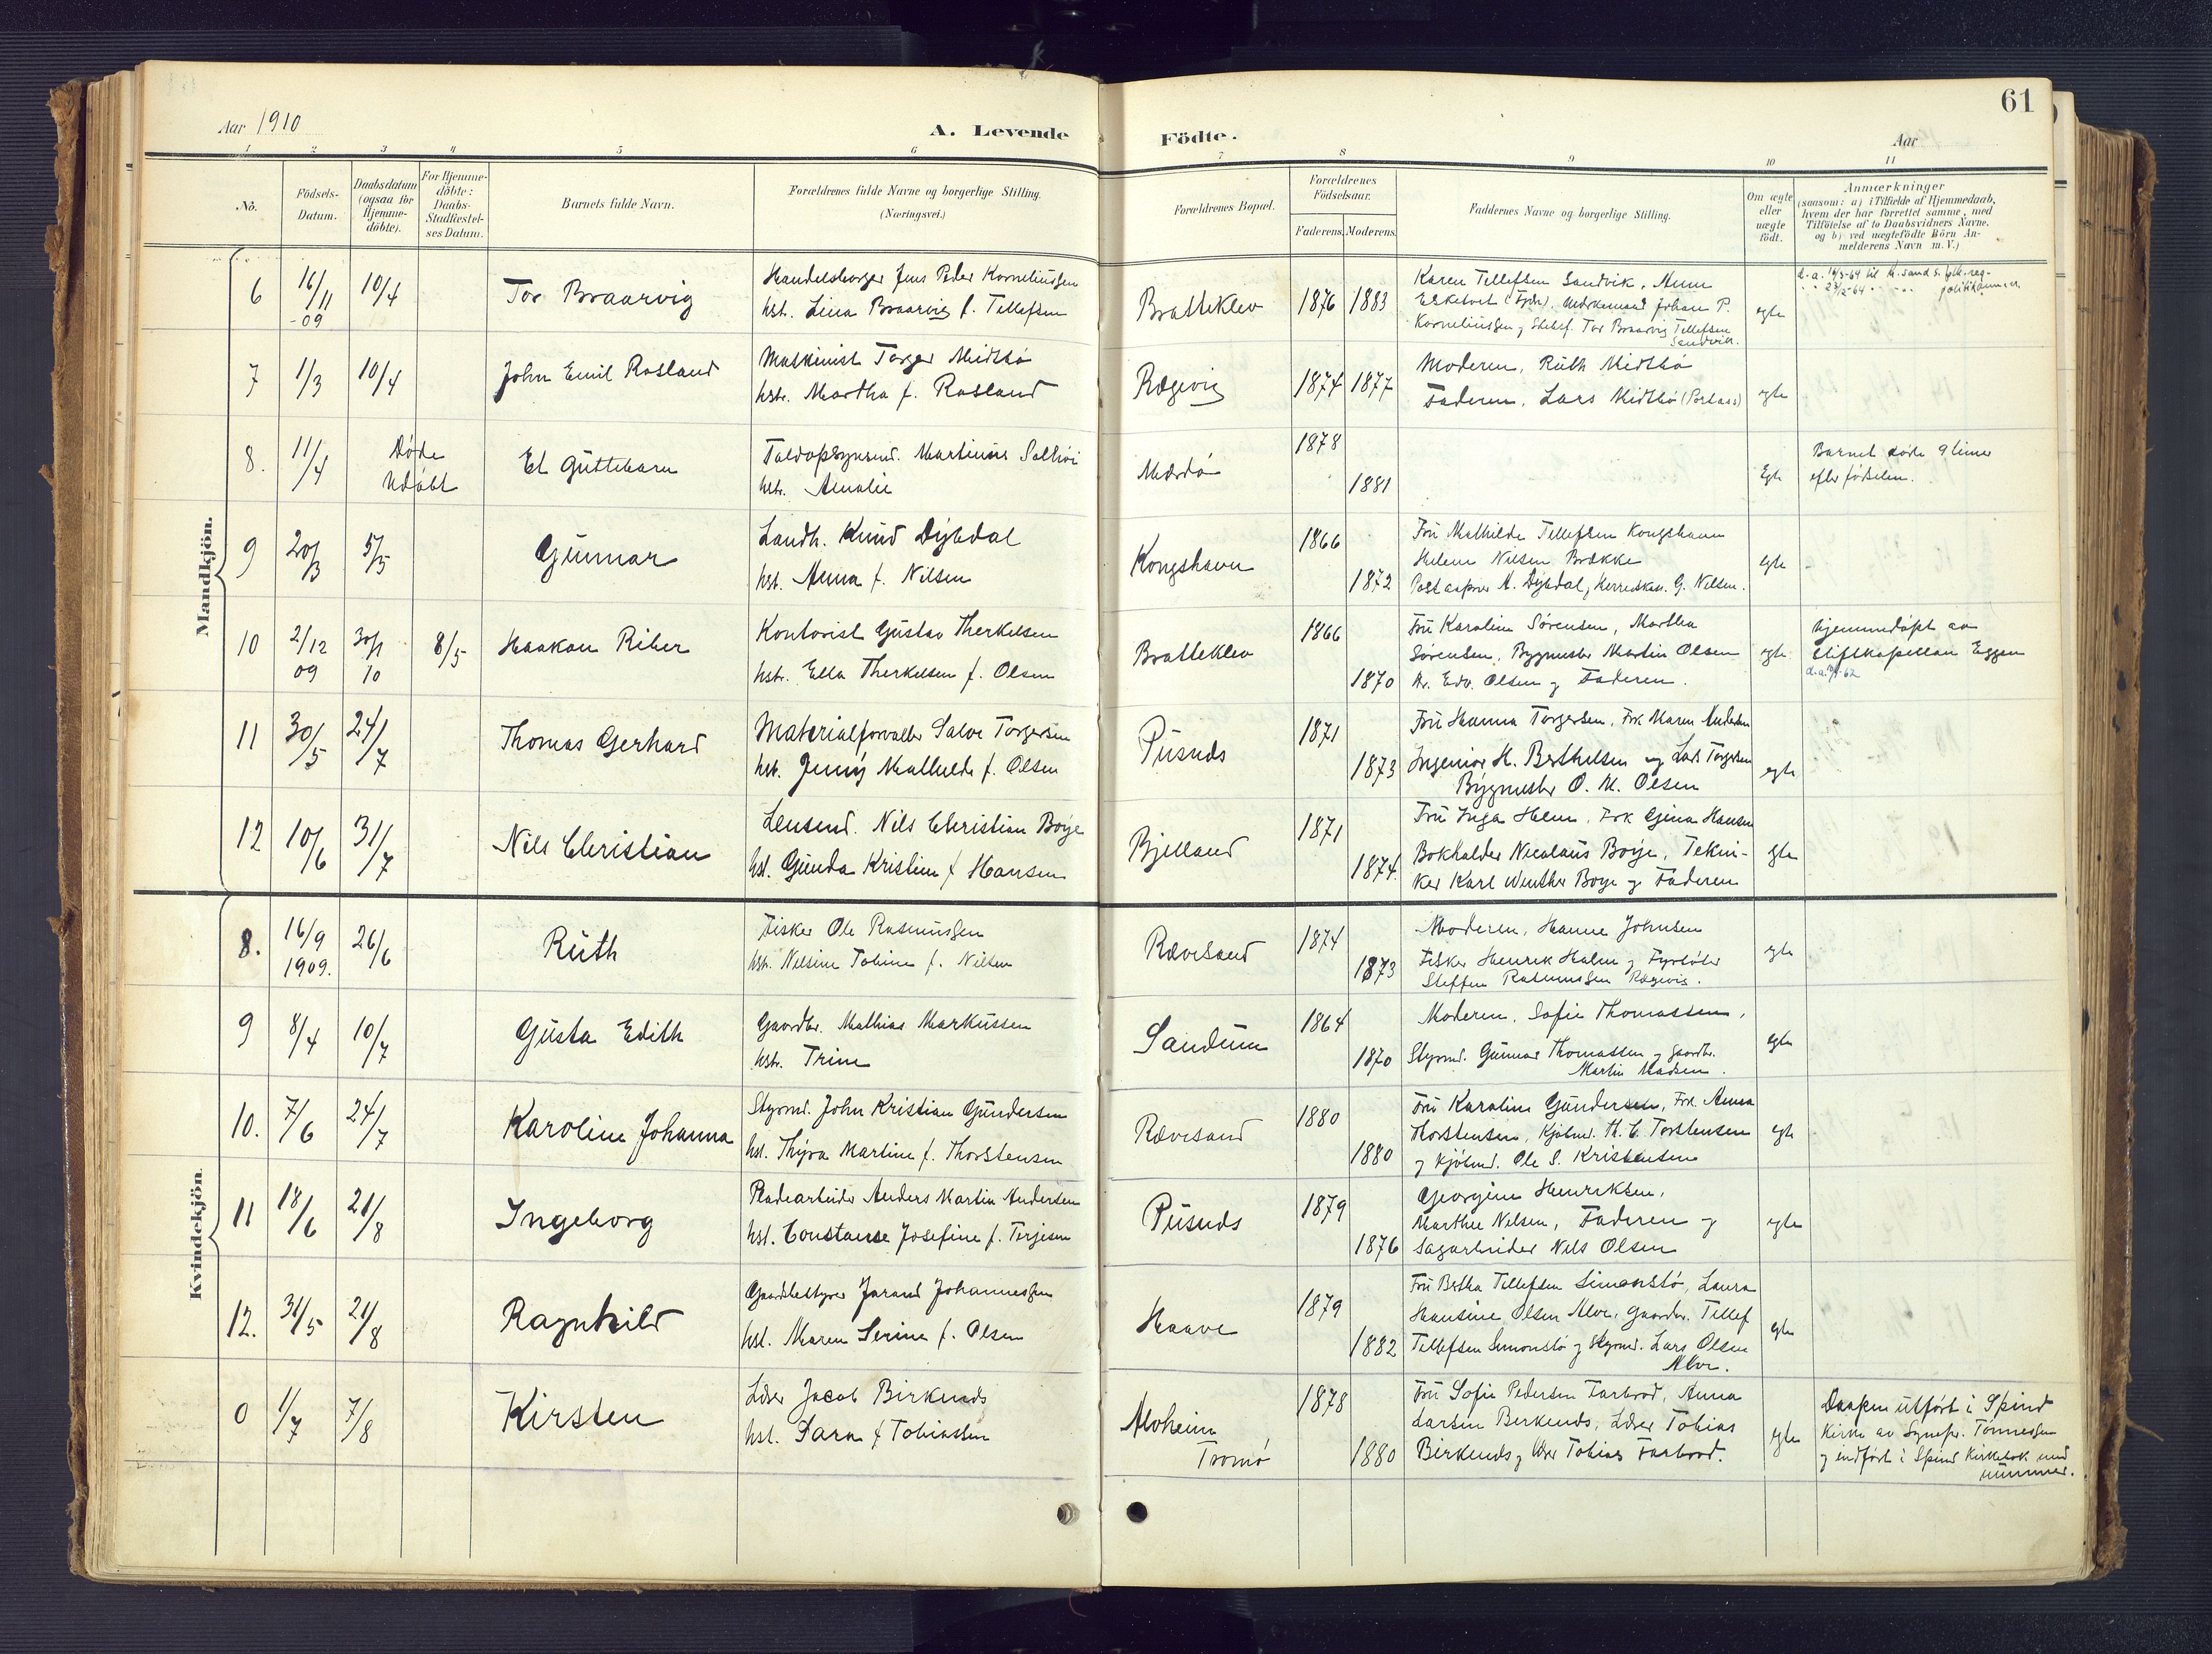 61
Aar 1910
A. Levende
Födte.
Aar
1 2 3 4 5 6 7 8 9 10 11
No.
Födsels-
Datum.
Daabsdatum
(ogsaa for
Hjemme-
döbte).
For Hjemme-
döbte:
Daabs-
Stadfæstel-
ses Datum.
Barnets fulde Navn.
Forældrenes fulde Navne og borgerlige Stilling.
(Næringsvei.)
Forældrenes Bopæl.
Forældrenes
Födselsaar.
Faderens. Moderens.
Faddernes Navne og borgerlige Stilling.
Om ægte
eller
uægte
födt.
Anmærkninger
(saasom: a) i Tilfælde af Hjemmedaab,
hvem der har forrettet samme, med
Tilföielse af to Daabsvidners Navne.
og b) ved uægtefödte Börn An-
melderens Navn m. V.)
Mandkjön.
6
16/11
-09
10/4
Tor Braarvig
Handelsborger Jens Peder Korneliussen
hst. Lina Braarvig f. Tellefsen
Bratteklev
1876 1883
Karen Tellefsen Sandvik, Anna
Johan P.
Korneliussen og Tor Braarvig Tellefsen
Sandvik.
egte
7
1/3
10/4
John Emil Rosland
Maskinist Torger Midtbø
hstr. Martha f. Rosland
Rægevig
1874 1877
Moderen, Ruth Midtbø
Faderen, Lars Midtbø
egte
8.
11/4
Døde
Udøbt
Et Guttebarn
Martinius
hstr. Amalie
Mærdø
1878
1881
Egte
Barnet døde 9 timer
efter fødselen.
9
20/3
5/5
Gunnar
Landh. Knud Dybdal
hst. Anna f. Nilsen
Kongshavn
1866
1872
Fru Mathilde Tellefsen Kongshavn
Helene Nilsen Brække
A. Dybdal, G. Nilsen.
egte
10
2/12
09
30/1
10
8/5
Haakon Riber
Kontorist Gustav Therkelsen
hstr. Ella Therkelsen f. Olsen
Bratteklev
1866
1870
Fru Karoline Sørensen, Martha
Sørensen, Bygmester Martin Olsen
Hr. Edv. Olsen og Faderen.
egte
hjemmedøpt av
stiftskapellan Eggen
11
30/5
24/7
Thomas Gerhard
Materialforvalter Salve Torgersen
hst. Jenny Mathilde f. Olsen
Pusnes
1871
1873
Fru Hanna Torgersen, Frk Maren Andersen
Ingeniør H. Berthelsen og Lars Torgersen
Bygmester O. M. Olsen
egte
12
10/6
31/7
Nils Christian
Nils Christian Boye
hst. Gunda Kristine f. Hansen
Bjelland
1871
1874.
Fru Inga Helen, Frk Gina Hansen
Bokholder Nicolaus Boye, Tekni-
ker Karl Winther Boye og Faderen
egte
Kvindekjön
8.
16/9
1909.
26/6
Ruth
Fisker Ole Rasmussen
hst. Nilsine Tobine f. Nilsen
Rævesand
1874
1873
Moderen, Hanne Johnsen
Fisker Henrik Holm og Fyrbøter
Steffen Rasmussen Rægevig.
egte
9
8/4
10/7
Gusta Edith
Gaardbr. Mathias Markussen
hstr. Trine
Sandum
1864
1870
Moderen, Sofie Thomassen,
Styrmd. Gunnar Thomassen og Gaardbr.
Martin Madsen.
egte
10.
7/6
24/7
Karoline Johanna
Styrmd. John Kristian Gundersen
hst. Thyra Martine f. Thorstensen
Rævesand
1880
1880
Fru Karoline Gundersen, Frk. Anna
Thorstensen, Kjøbmd. H. C. Torstensen
og Kjøbmd. Ole S. Kristensen
egte
11
18/6
21/8
Ingeborg
Pladearbeider Anders Martin Andersen
hst. Constanse Josefine f. Terjesen
Pusnes
1879
1876
Georgine Henriksen,
Marthe Nilsen, Faderen og
Sagarbeider Nils Olsen
egte
12.
31/5
21/8
Ragnhild
Gaardbestyrer Jorand Johannessen
hst. Maren Serine f. Olsen
Haave
1879
1882
Fru Bertha Tellefsen Simonstø, Laura
Hansine Olsen Alve, Gaardbr. Tellef
Tellefsen Simonstø og Styrmd. Lars Olsen
Alve.
egte
0
1/7
7/8
Kirsten
Lærer Jacob Birkenes
hst. Sara f. Tobiassen
Alvheim
Tromø
1878
1880
Fru Sofie Pedersen Farbrod, Anna
Larsen Birkenes, Lærer Tobias
Birkenes og Tobias Farbrod.
egte
Daapen utført i Spind
Kirke av Sognepr. Tønnessen
og indført i Spind Kirkebok med
nummer.